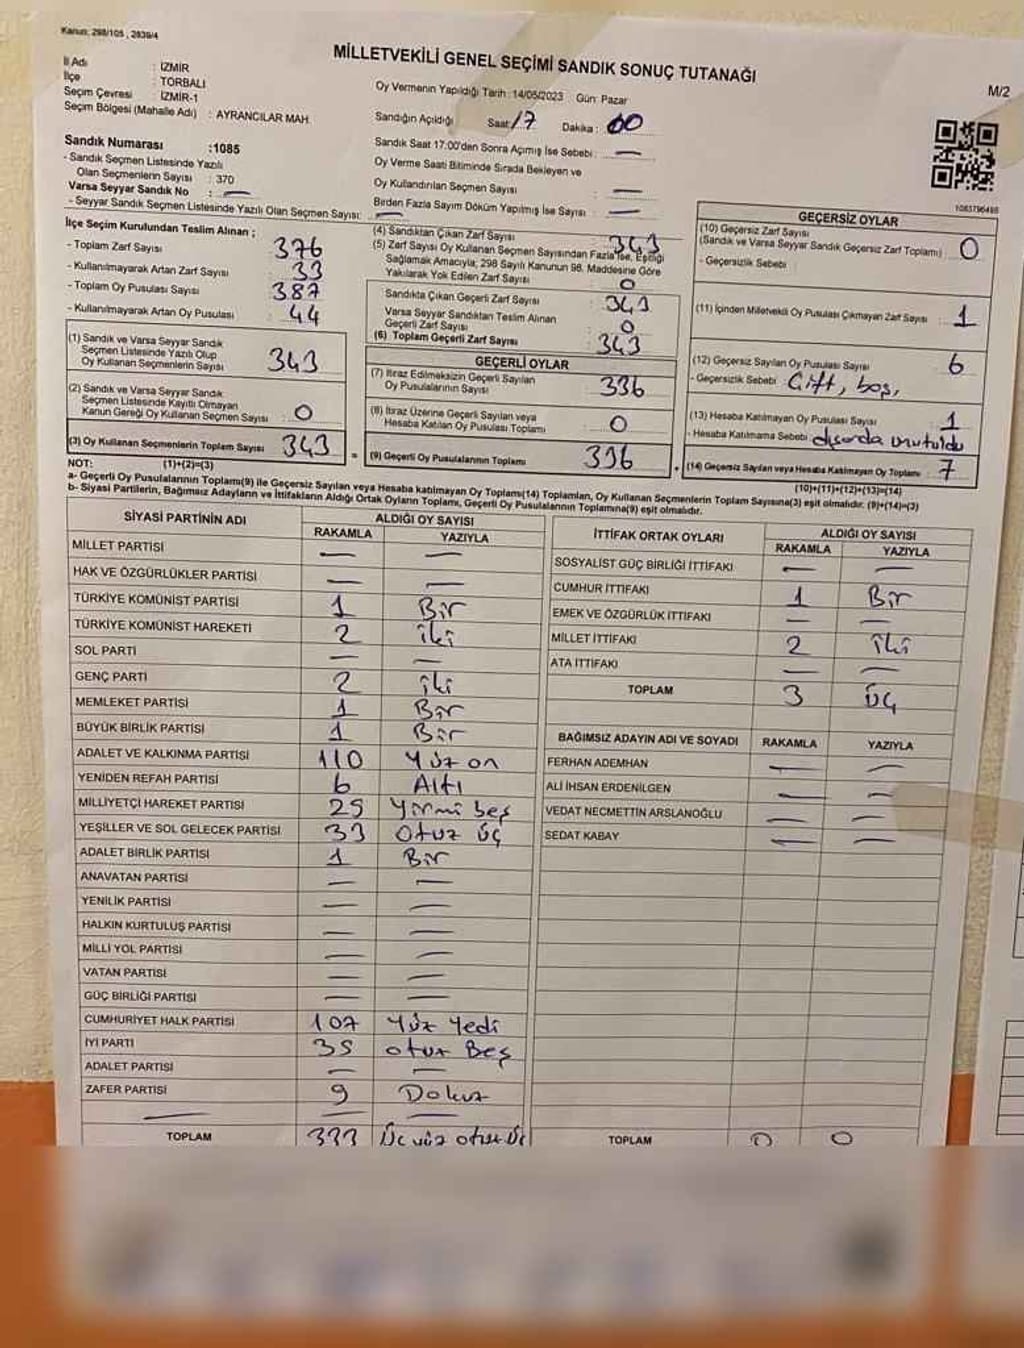 Kanun: 298/105 , 2839/4
MİLLETVEKİLİ GENEL SEÇİMİ SANDIK SONUÇ TUTANAĞI
M/2
İl Adı : İZMİR
İlçe : TORBALI
Seçim Çevresi : İZMİR-1
Seçim Bölgesi (Mahalle Adı) : AYRANCILAR MAH.
Sandık Numarası :1085
- Sandık Seçmen Listesinde Yazılı
Olan Seçmenlerin Sayısı : 370
Varsa Seyyar Sandık No : —
- Seyyar Sandık Seçmen Listesinde Yazılı Olan Seçmen Sayısı: —
Oy Vermenin Yapıldığı Tarih : 14/05/2023 Gün: Pazar
Sandığın Açıldığı Saat: 17 Dakika : 00
Sandık Saat 17:00'den Sonra Açımış İse Sebebi : —
Oy Verme Saati Bitiminde Sırada Bekleyen ve
Oy Kullandırılan Seçmen Sayısı : —
Birden Fazla Sayım Döküm Yapılmış İse Sayısı : —
1083796498
İlçe Seçim Kurulundan Teslim Alınan ;
- Toplam Zarf Sayısı : 376
- Kullanılmayarak Artan Zarf Sayısı : 33
- Toplam Oy Pusulası Sayısı : 387
- Kullanılmayarak Artan Oy Pusulası : 44
(1) Sandık ve Varsa Seyyar Sandık
Seçmen Listesinde Yazılı Olup
Oy Kullanan Seçmenlerin Sayısı : 343
(2) Sandık ve Varsa Seyyar Sandık
Seçmen Listesinde Kayıtlı Olmayan
Kanun Gereği Oy Kullanan Seçmen Sayısı : 0
(3) Oy Kullanan Seçmenlerin Toplam Sayısı : 343
(1)+(2)=(3)
(4) Sandıktan Çıkan Zarf Sayısı : 343
(5) Zarf Sayısı Oy Kullanan Seçmen Sayısından Fazla İse, Eşitliği
Sağlamak Amacıyla, 298 Sayılı Kanunun 98. Maddesine Göre
Yakılarak Yok Edilen Zarf Sayısı : 0
Sandıkta Çıkan Geçerli Zarf Sayısı : 343
Varsa Seyyar Sandıktan Teslim Alınan
Geçerli Zarf Sayısı : 0
(6) Toplam Geçerli Zarf Sayısı : 343
GEÇERLİ OYLAR
(7) İtiraz Edilmeksizin Geçerli Sayılan
Oy Pusulalarının Sayısı : 336
(8) İtiraz Üzerine Geçerli Sayılan veya
Hesaba Katılan Oy Pusulası Toplamı : 0
= (9) Geçerli Oy Pusulalarının Toplamı : 336
GEÇERSİZ OYLAR
(10) Geçersiz Zarf Sayısı
(Sandık ve Varsa Seyyar Sandık Geçersiz Zarf Toplamı) : 0
- Geçersizlik Sebebi
(11) İçinden Milletvekili Oy Pusulası Çıkmayan Zarf Sayısı : 1
(12) Geçersiz Sayılan Oy Pusulası Sayısı : 6
- Geçersizlik Sebebi : Çift, boş,
(13) Hesaba Katılmayan Oy Pusulası Sayısı : 1
- Hesaba Katılmama Sebebi : dışarda unutuldu
+ (14) Geçersiz Sayılan veya Hesaba Katılmayan Oy Toplamı : 7
(10)+(11)+(12)+(13)=(14)
NOT:
a- Geçerli Oy Pusulalarının Toplamı(9) ile Geçersiz Sayılan veya Hesaba katılmayan Oy Toplamı(14) Toplamları, Oy Kullanan Seçmenlerin Toplam Sayısına(3) eşit olmalıdır. (9)+(14)=(3)
b- Siyasi Partilerin, Bağımsız Adayların ve İttifakların Aldığı Ortak Oyların Toplamı, Geçerli Oy Pusulalarının Toplamına(9) eşit olmalıdır.
SİYASİ PARTİNİN ADI ALDIĞI OY SAYISI
RAKAMLA YAZIYLA
MİLLET PARTİSİ — —
HAK VE ÖZGÜRLÜKLER PARTİSİ — —
TÜRKİYE KOMÜNİST PARTİSİ 1 Bir
TÜRKİYE KOMÜNİST HAREKETİ 2 iki
SOL PARTİ — —
GENÇ PARTİ 2 iki
MEMLEKET PARTİSİ 1 Bir
BÜYÜK BİRLİK PARTİSİ 1 Bir
ADALET VE KALKINMA PARTİSİ 110 Yüz on
YENİDEN REFAH PARTİSİ 6 Altı
MİLLİYETÇİ HAREKET PARTİSİ 25 Yirmi beş
YEŞİLLER VE SOL GELECEK PARTİSİ 33 Otuz üç
ADALET BİRLİK PARTİSİ 1 Bir
ANAVATAN PARTİSİ — —
YENİLİK PARTİSİ — —
HALKIN KURTULUŞ PARTİSİ — —
MİLLİ YOL PARTİSİ — —
VATAN PARTİSİ — —
GÜÇ BİRLİĞİ PARTİSİ — —
CUMHURİYET HALK PARTİSİ 107 Yüz Yedi
İYİ PARTİ 35 otuz Beş
ADALET PARTİSİ — —
ZAFER PARTİSİ 9 Dokuz
— — —
TOPLAM 333 Üç yüz otuz üç
İTTİFAK ORTAK OYLARI ALDIĞI OY SAYISI
RAKAMLA YAZIYLA
SOSYALİST GÜÇ BİRLİĞİ İTTİFAKI — —
CUMHUR İTTİFAKI 1 Bir
EMEK VE ÖZGÜRLÜK İTTİFAKI — —
MİLLET İTTİFAKI 2 iki
ATA İTTİFAKI — —
TOPLAM 3 üç
BAĞIMSIZ ADAYIN ADI VE SOYADI RAKAMLA YAZIYLA
FERHAN ADEMHAN — —
ALİ İHSAN ERDENİLGEN — —
VEDAT NECMETTİN ARSLANOĞLU — —
SEDAT KABAY — —
TOPLAM 0 0